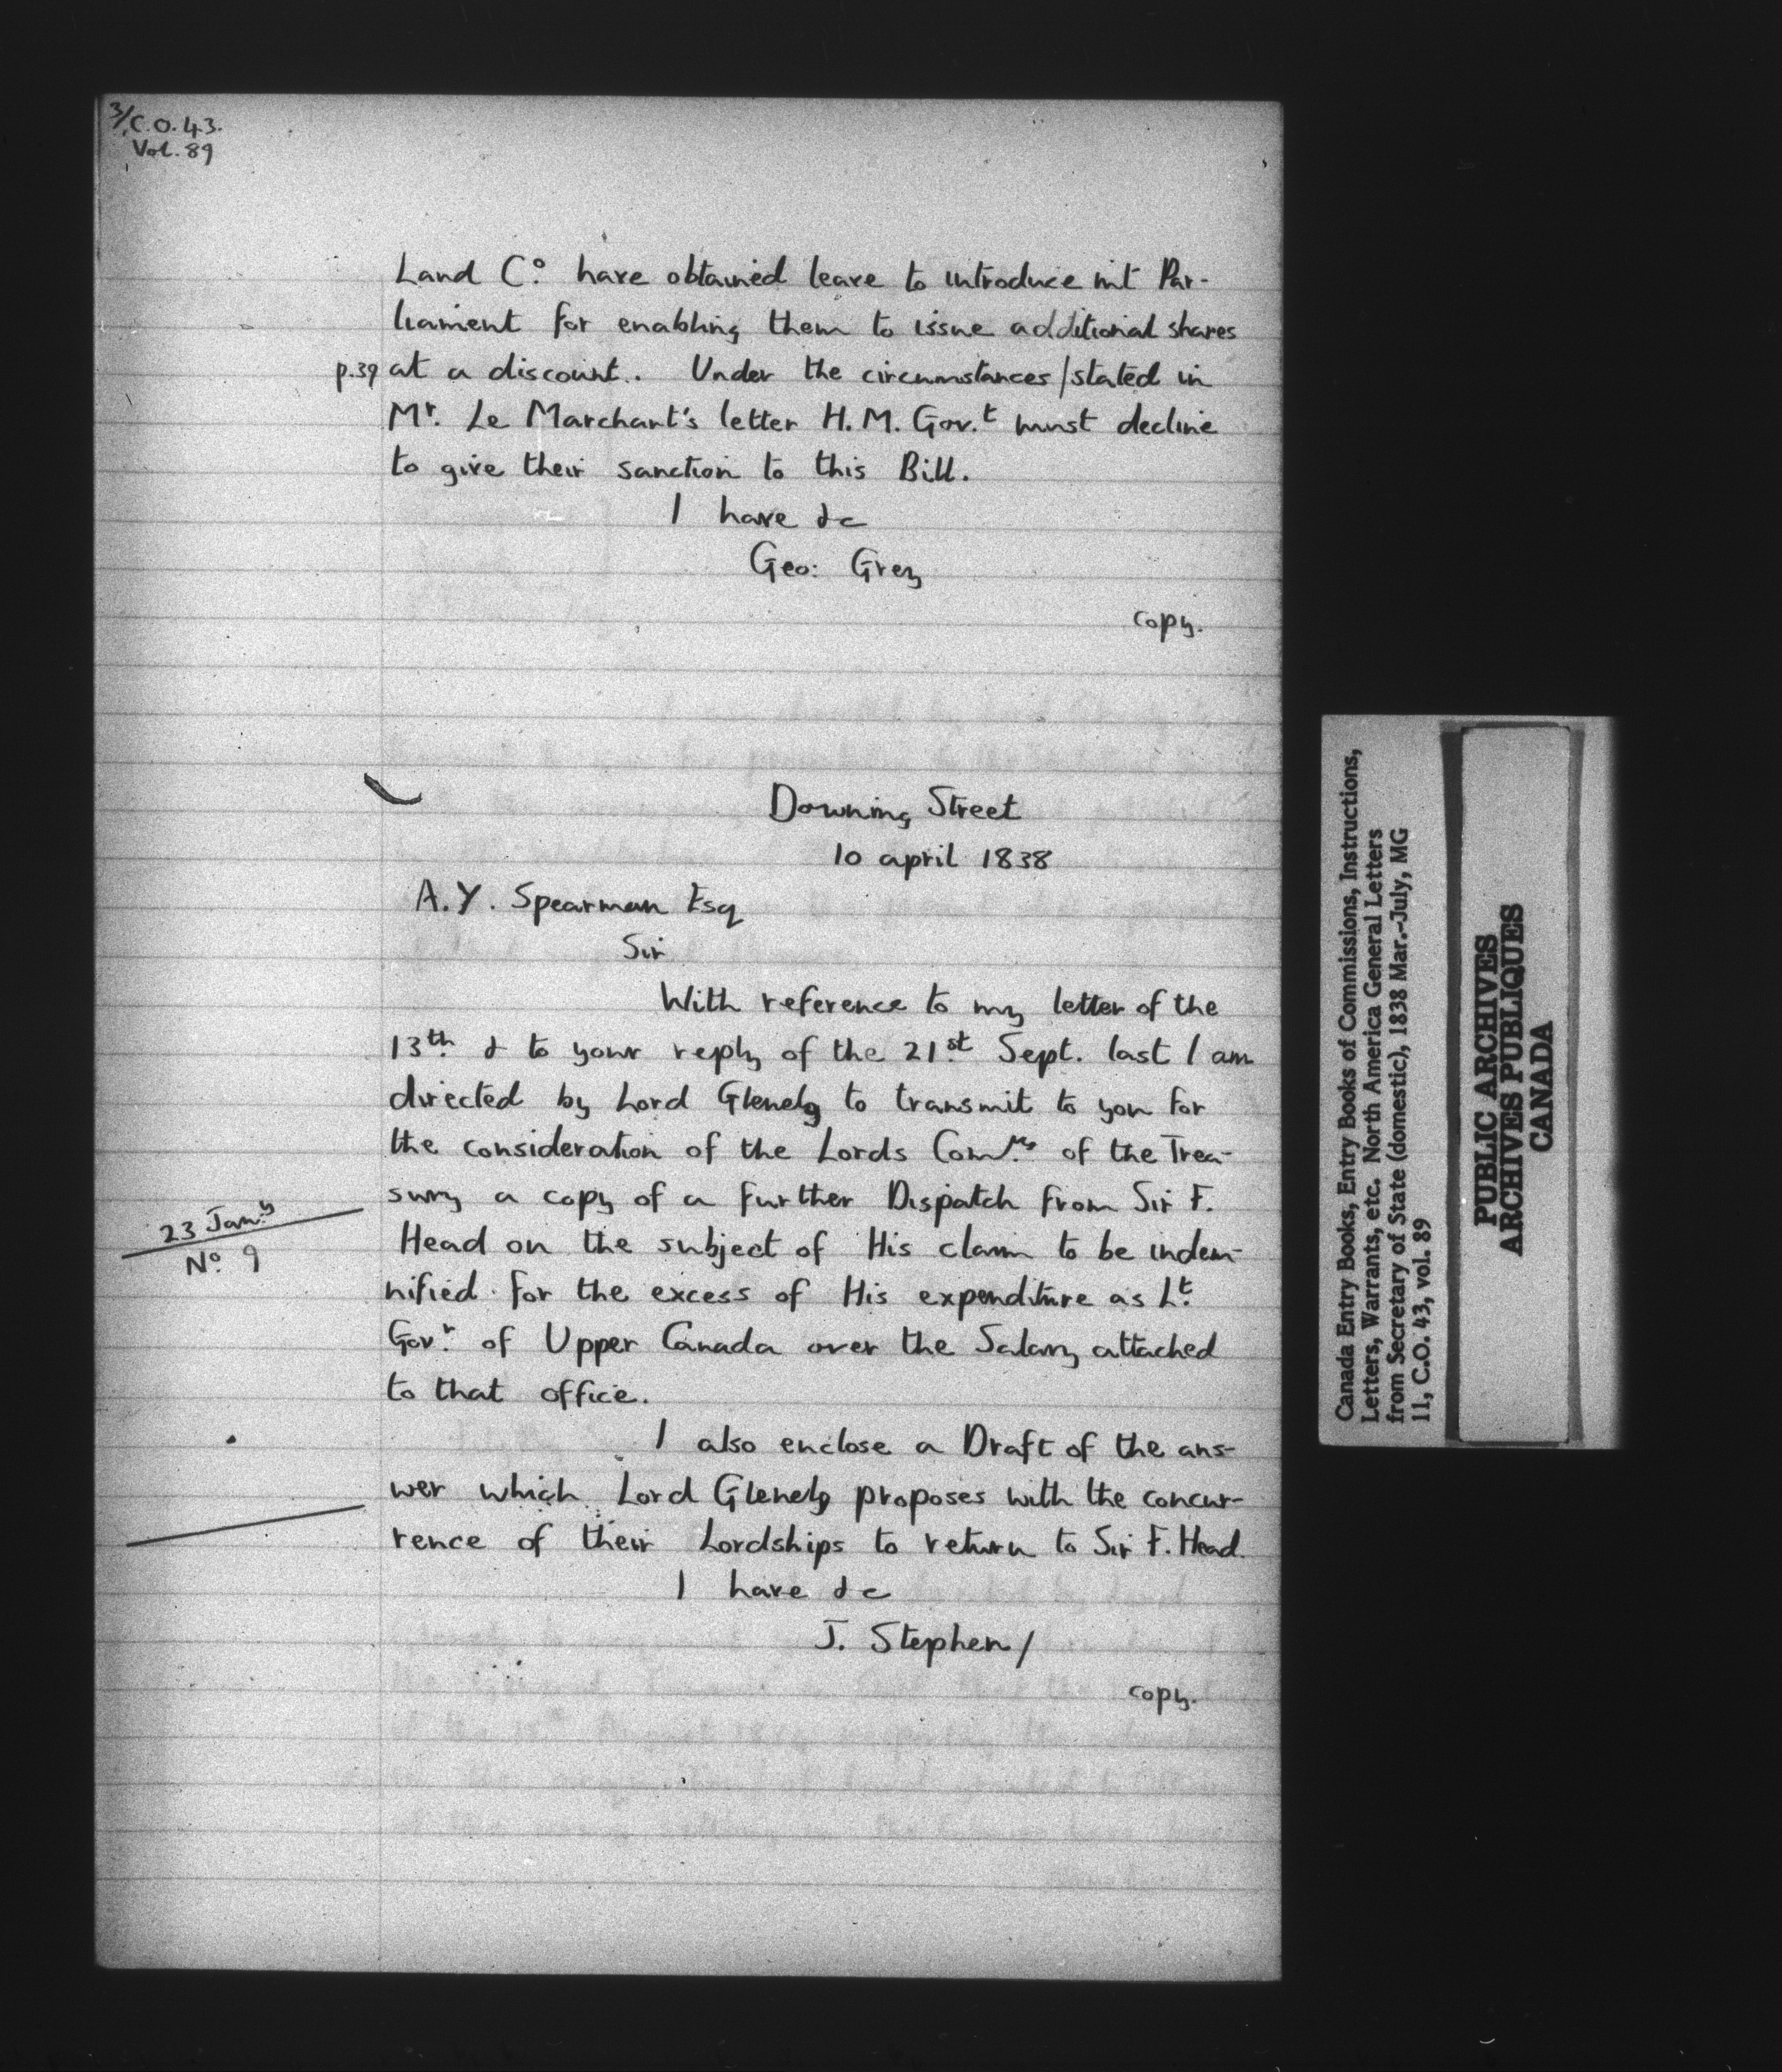 3/C.O. 43.
Vol. 89
Land Cº. have obtained leave to introduce int Par-
liament for enabling them to issue additional shares
p.39 at a discount. Under the circumstances/stated in
Mr. Le Marchant's letter H.M. Gov.t must decline
to give their sanction to this Bill.
I have &c
Geo: Grey
copy.
Downing Street
10 april 1838
A.Y. Spearman Esq
Sir
With reference to my letter of the
13th. & to your reply of the 21st. Sept. last I am
directed by Lord Glenelg to transmit to you for
the consideration of the Lords Comrs. of the Trea-
sury a copy of a further Dispatch from Sir F.
23 Jany.
Nº. 9
Head on the subject of His claim to be indem-
nified for the excess of His expenditure as Lt.
Govr. of Upper Canada over the Salary attached
to that office.
I also enclose a Draft of the ans-
wer which Lord Glenelg proposes with the concur-
rence of their Lordships to return to Sir F. Head.
I have &c
J. Stephen/
copy.
Canada Entry Books, Entry Books of Commissions, Instructions,
Letters, Warrants, etc. North America General Letters
from Secretary of State (domestic), 1838 Mar.-July, MG
11, C.O. 43, vol. 89
PUBLIC ARCHIVES
ARCHIVES PUBLIQUES
CANADA